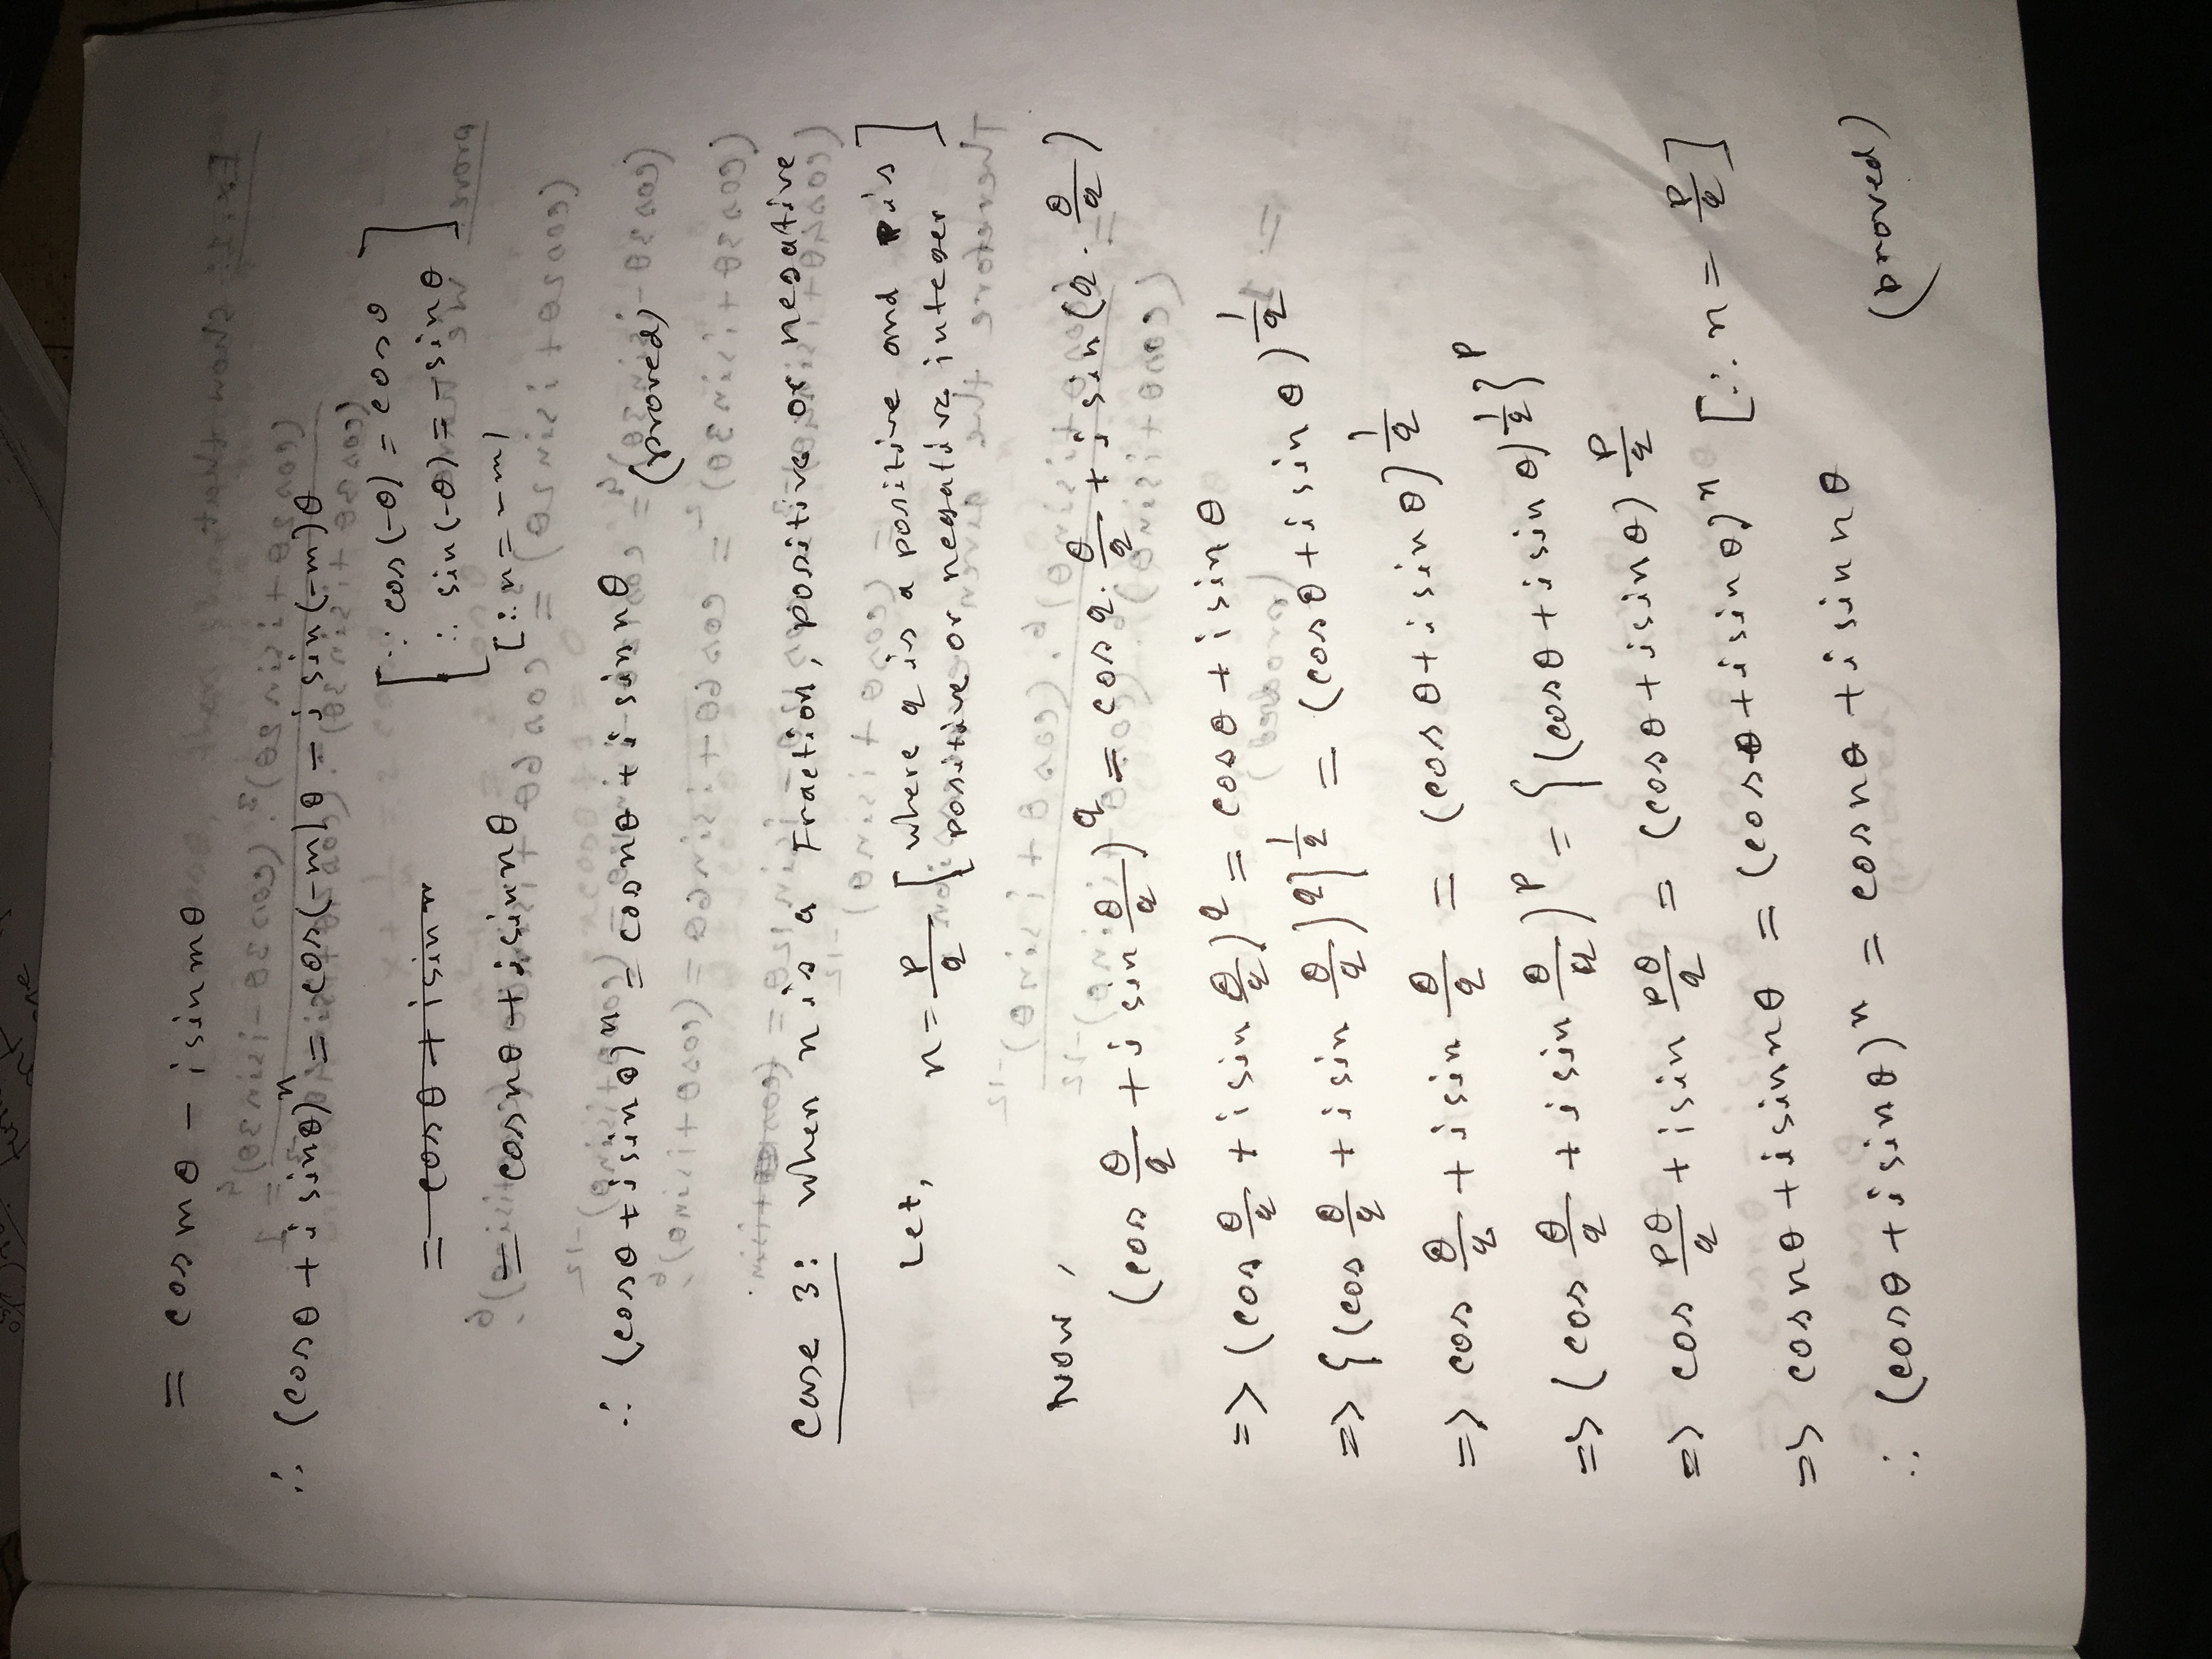 = cos mθ - i sin mθ
∴ (cosθ + i sinθ)ⁿ = cos(-m)θ - i sin(-m)θ
= ~~cosθ + i sin n~~ [∵ cos(-θ) = cosθ
∴ sin(-θ) = -sinθ]
= cos nθ + i sin nθ [∴ n = -m)
∴ (cosθ + i sinθ)ⁿ = cos nθ + i sin nθ (proved)
Case 3: When n is a Fraction, positive or negative
Let, n = p/q [where q is a positive and p is
positive or negative integer]
Now,
(cos θ/q + i sin θ/q)^q = cos q. θ/q + i sin (q . θ/q)
=> (cos θ/q + i sin θ/q)^q = cosθ + i sinθ
=> {(cos θ/q + i sin θ/q)^q}^1/q = (cosθ + i sinθ)^1/q
=> cos θ/q + i sin θ/q = (cosθ + i sinθ)^1/q
=> (cos θ/q + i sin θ/q)^p = {(cosθ + i sinθ)^1/q}^p
=> cos pθ/q + i sin pθ/q = (cosθ + i sinθ)^p/q
=> cos nθ + i sin nθ = (cosθ + i sinθ)ⁿ [∴ n = p/q]
∴ (cosθ + i sinθ)ⁿ = cos nθ + i sin nθ (proved)